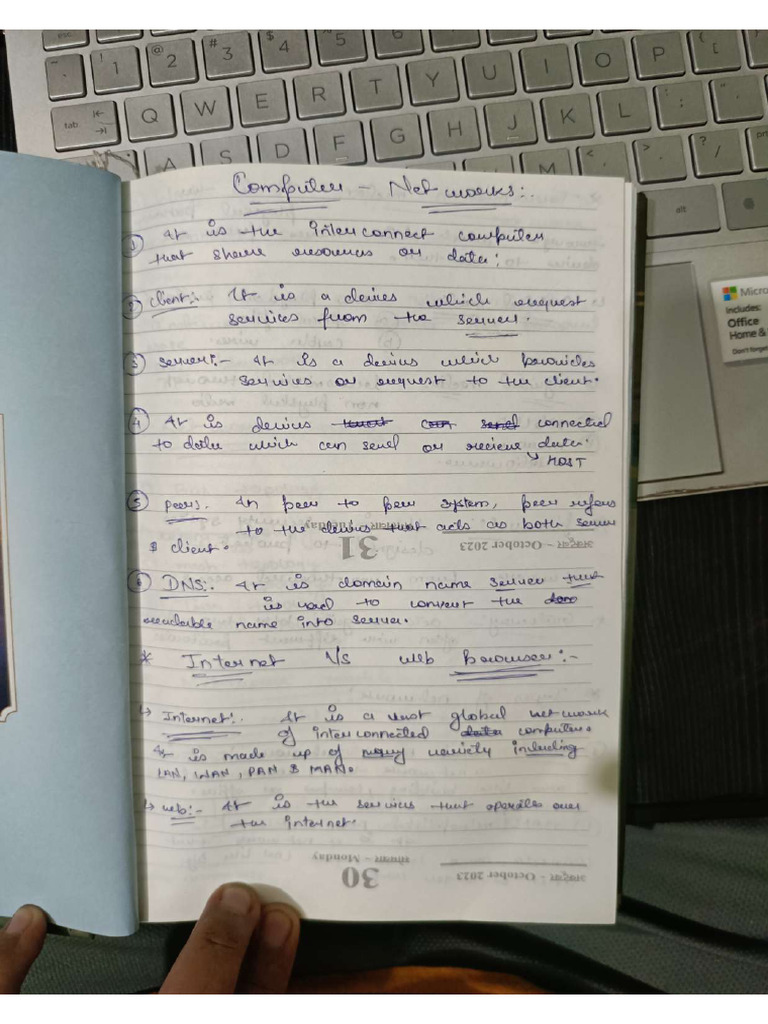 Computer - Networks:-
① It is the interconnect computer
that share resources or data:
② Client:- It is a devies which request
services from the server.
③ server:- It is a devius which provides
servives or request to the client.
④ It is devius can send connected
to data which can send or recieve data.
↳ HOST
⑤ peers. In peer to peer system, peer refers
to the devius that acts as both server
& client.
31 अक्टूबर - October 2023
मंगलवार - Tuesday
⑥ DNS:- It is domain name server that
is used to convert the
readable name into server.
* Internet V/s web browser:-
↳ Internet:. It is a vast global network
of interconnected data computer.
It is made up of many variety including
LAN, WAN, PAN & MAN.
↳ web:- It is the servives that operates over
the internet.
30 अक्टूबर - October 2023
सोमवार - Monday
tab
Q W E R T Y U I O P
A S D F G H J K L
M
alt
Micro
Includes:
Office
Home &
Don't forget